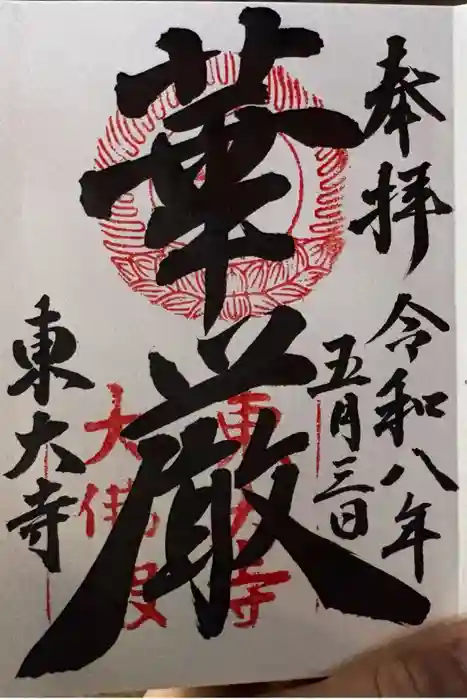 奉拝
令和八年
五月三日
華厳
東大寺
大佛殿
東大寺